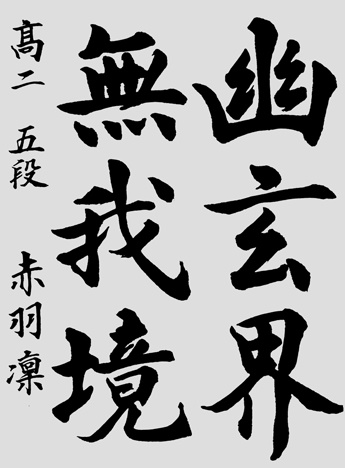 幽玄界
無我境
高二 五段 赤羽凜